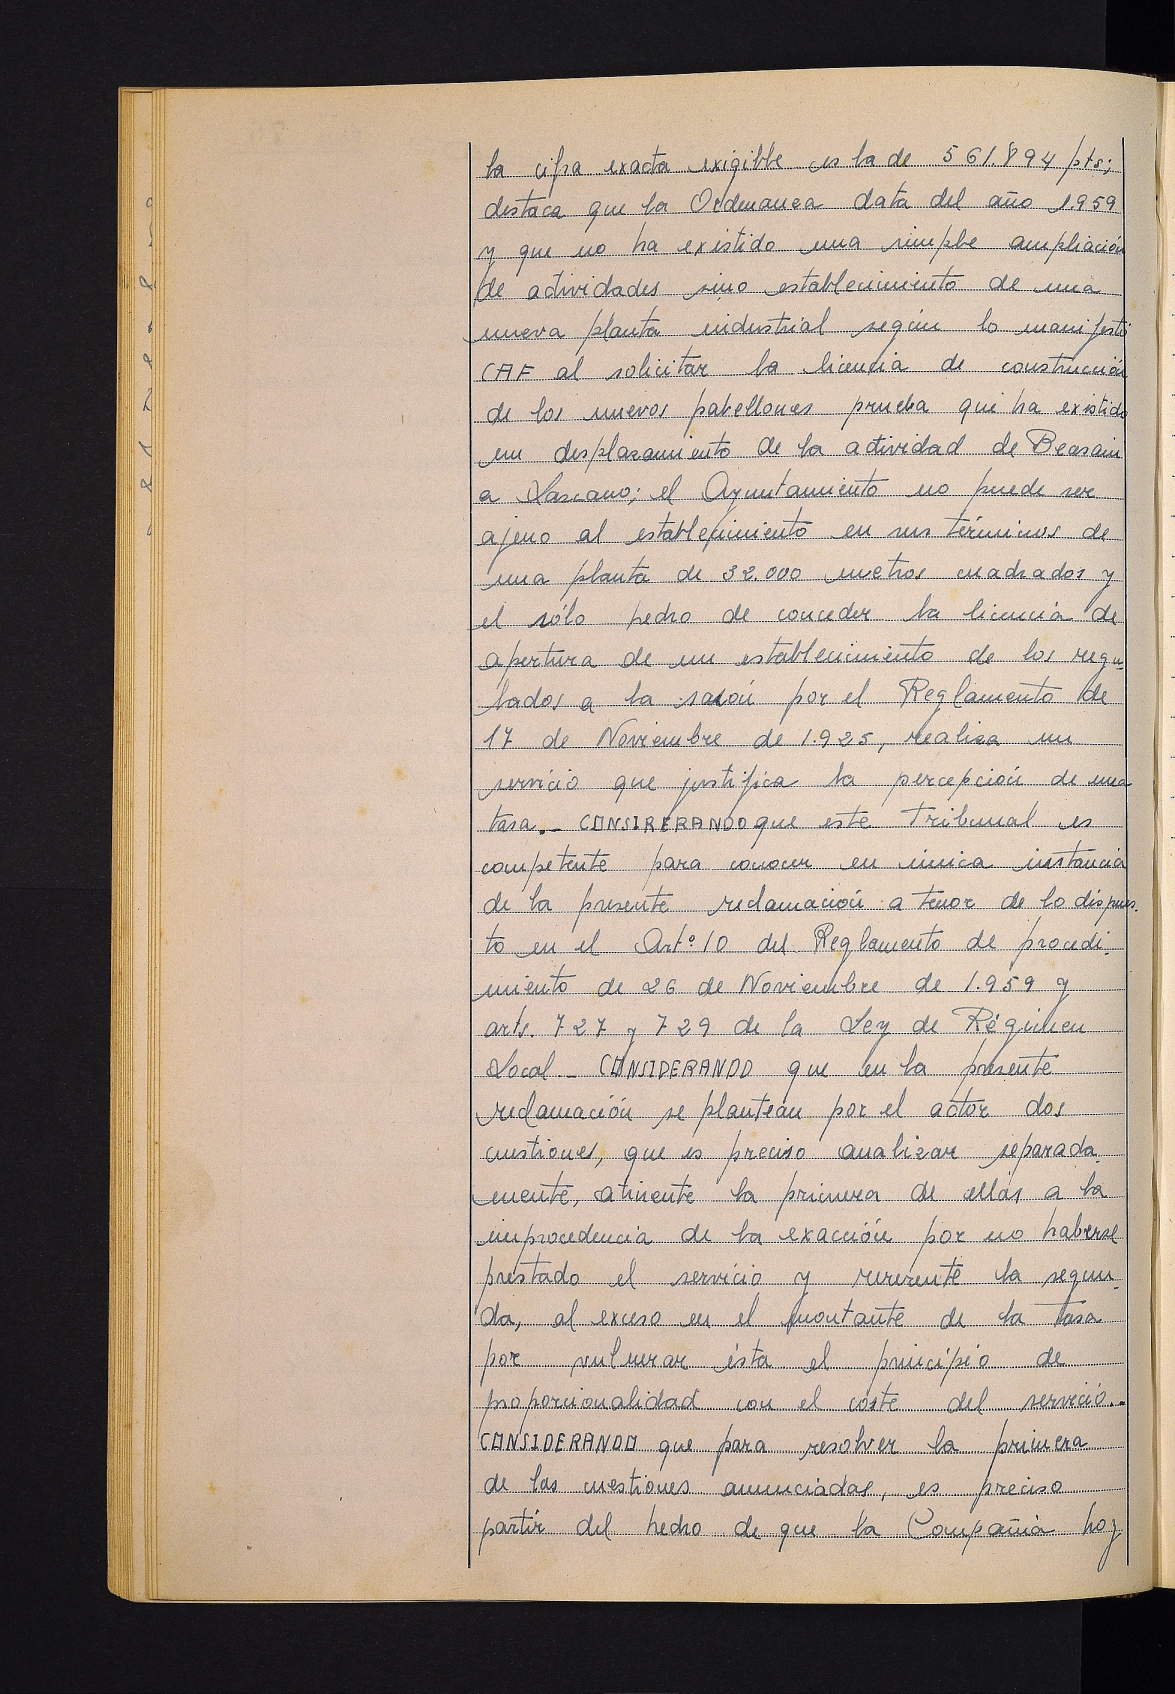 la cifra exacta exigible es la de 561.894 pts;
destaca que la Ordenanza data del año 1.959
y que no ha existido una simple ampliación
de actividades sino establecimiento de una
nueva planta industrial según lo manifestó
CAF al solicitar la licencia de construcción
de los nuevos pabellones prueba que ha existido
un desplazamiento de la actividad de Beasain
a Lazcano; el Ayuntamiento no puede ser
ajeno al establecimiento en sus términos de
una planta de 32.000 metros cuadrados y
el sólo hecho de conceder la licencia de
apertura de un establecimiento de los regu-
lados a la sazón por el Reglamento de
17 de Noviembre de 1.925, realiza un
servicio que justifica la percepción de una
tasa.- CONSIRERANDO que este Tribunal es
competente para conocer en única instancia
de la presente reclamación a tenor de lo dispues-
to en el Artº 10 del Reglamento de procedi-
miento de 26 de Noviembre de 1.959 y
arts. 727 y 729 de la Ley de Régimen
Local - CONSIDERANDO que en la presente
reclamación se plantean por el actor dos
cuestiones, que es preciso analizar separada-
mente, atinente la primera de ellas a la
improcedencia de la exacción por no haberse
prestado el servicio y rererente la segun-
da, al exceso en el montante de la tasa
por vulnerar ésta el principio de
proporcionalidad con el coste del servicio..
CONSIDERANDO que para resolver la primera
de las cuestiones anunciadas, es preciso
partir del hecho de que la Compañía hoy